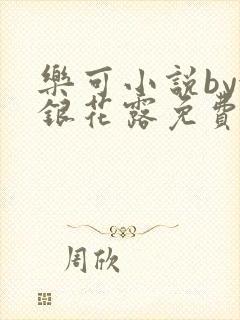 樂可小說by
銀花露免費
周欣